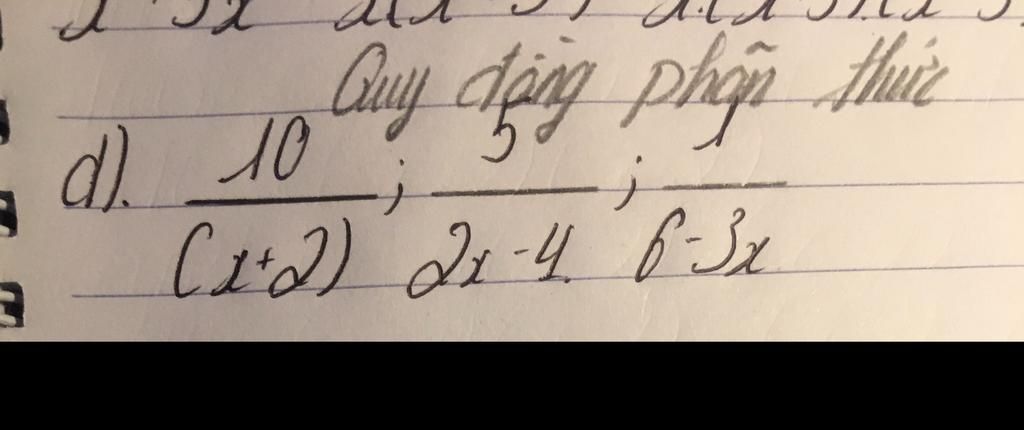 Quy đồng phân thức
d). 10/(x+2) ; 5/2x-4 ; 1/6-3x